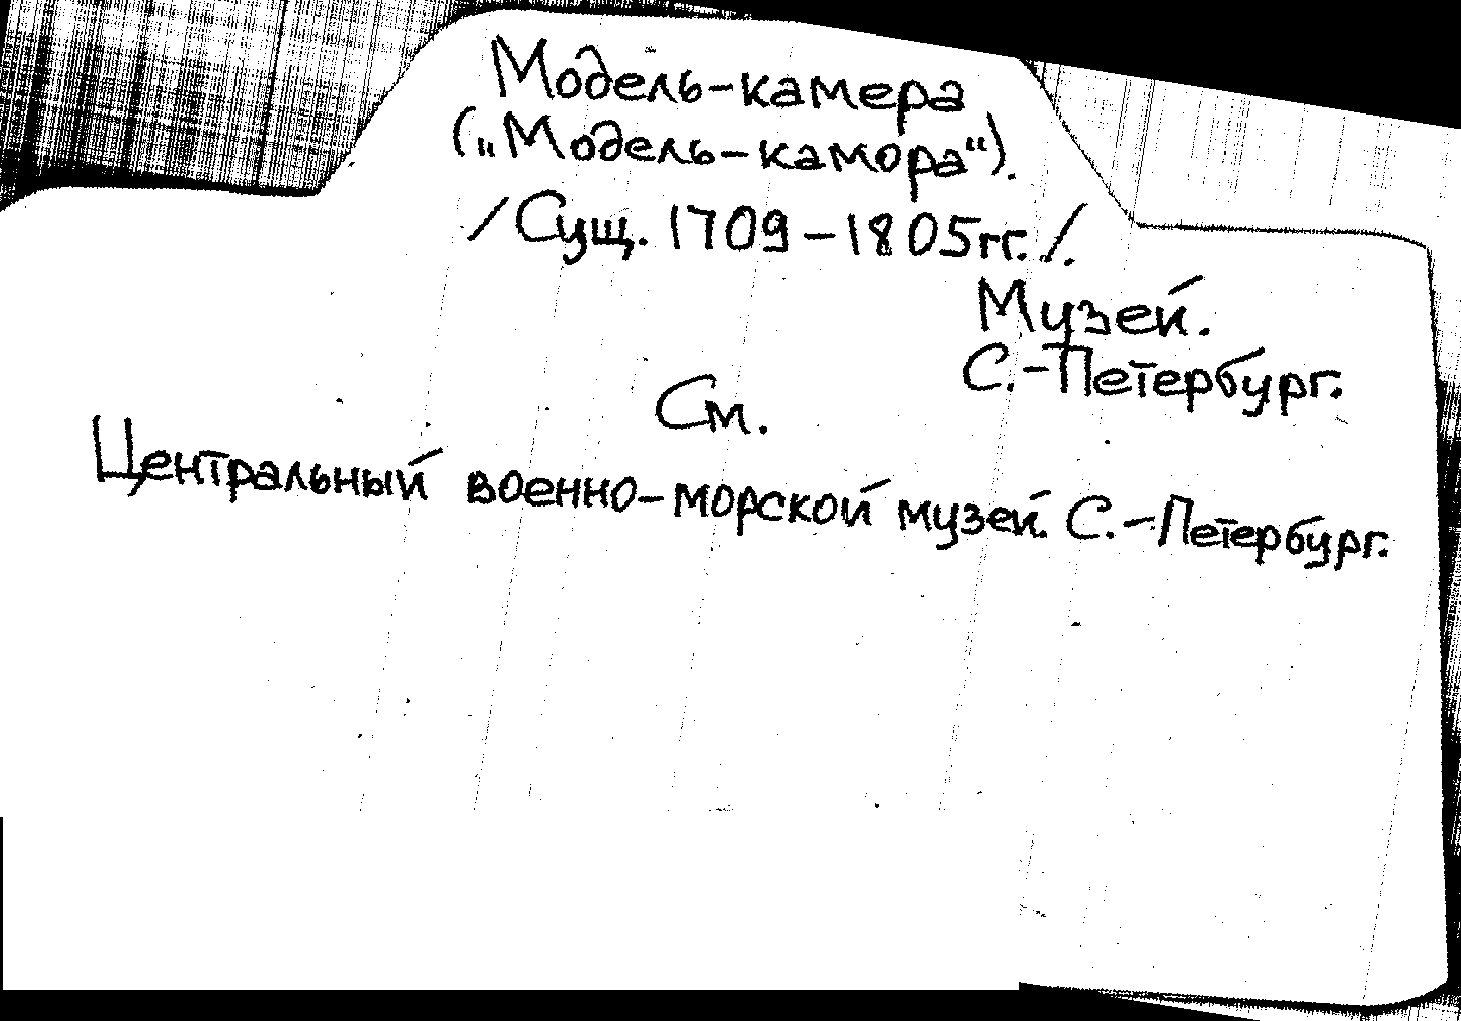 Модель-камера
(„Модель-камора“).
/Сущ. 1709-1805гг./.
Музей.
С.-Петербург.
См.
Центральный военно-морской музей. С.-Петербург.